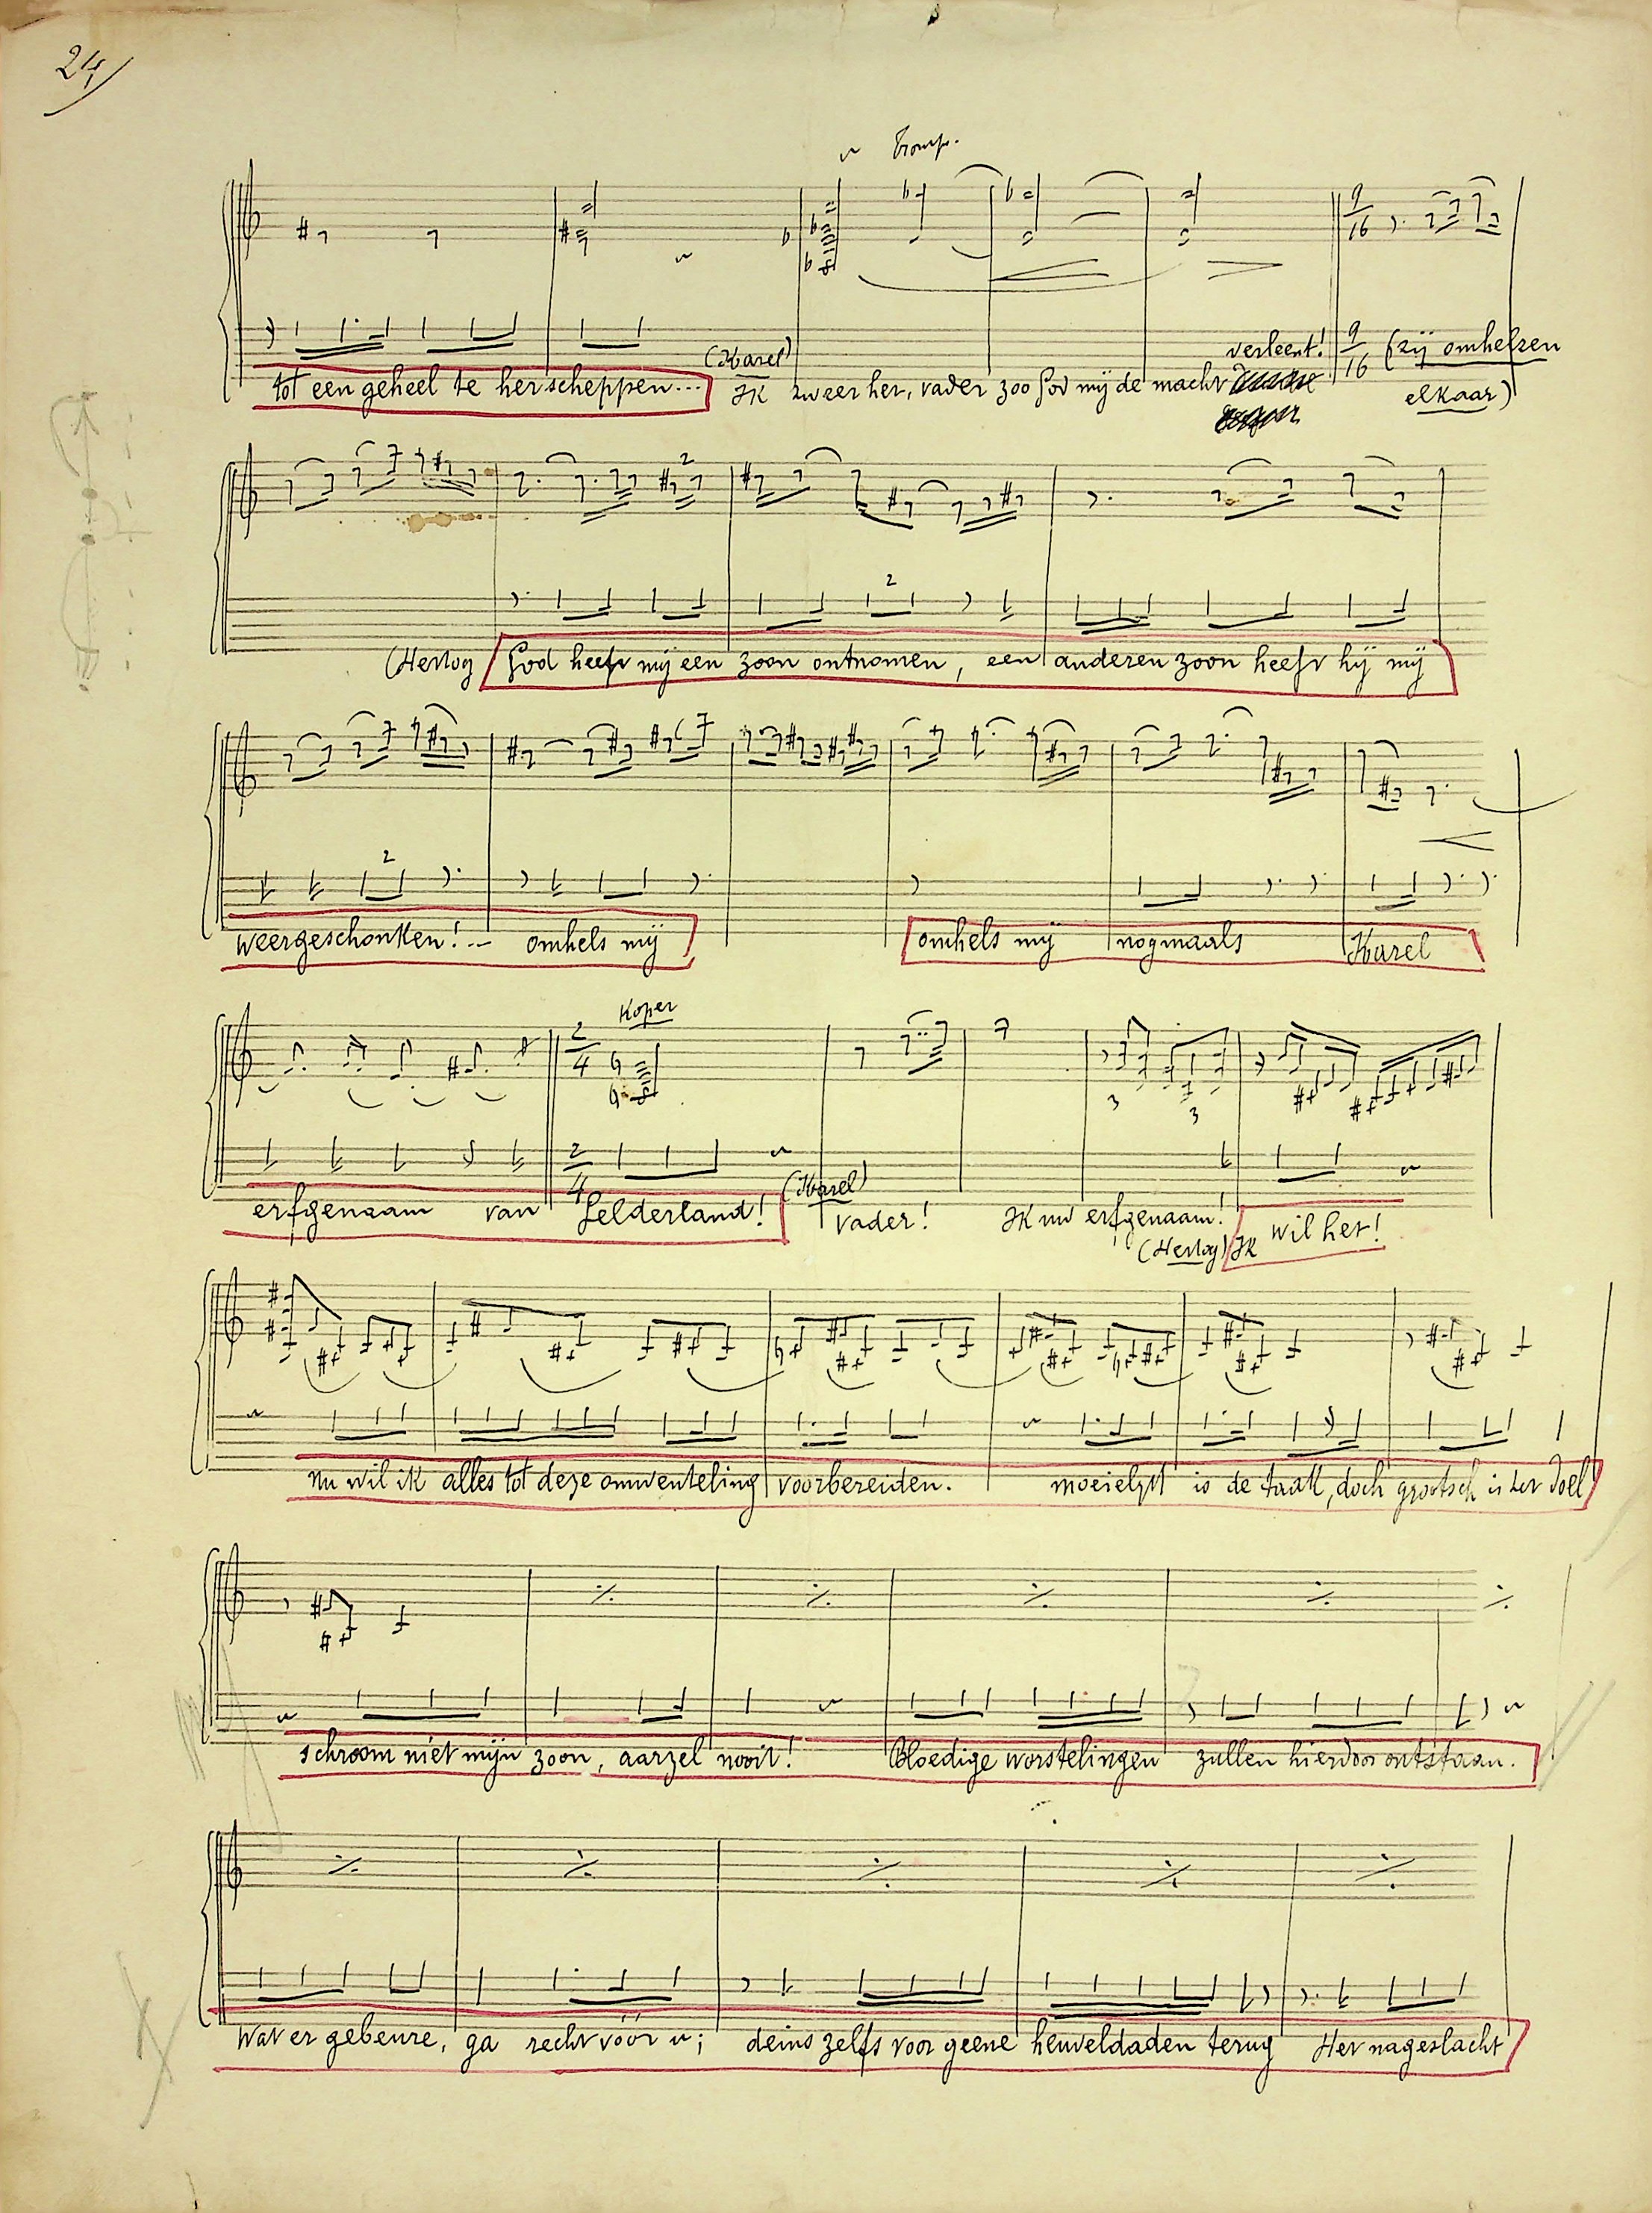 24
Tromp.
9/16
(Karel)
verleent!
9/16 (zij omhelzen
tot een geheel te herscheppen... Ik zweer het, vader zoo God mij de macht
elkaar)
2
2
(Hertog God heeft mij een zoon ontnomen, een anderen zoon heeft hij mij
2
weergeschonken!... omhels mij omhels mij nogmaals Karel
Koper
2/4
3 3
2/4
(Karel)
erfgenaam van Gelderland! vader! Ik uw erfgenaam! wil het!
(Hertog) Ik
nu wil ik alles tot deze omwenteling voorbereiden. moeielijk is de taak, doch grootsch is het doel
schroom niet mijn zoon, aarzel nooit! Bloedige worstelingen zullen hierdoor ontstaan.
Wat er gebeure, ga recht vóór u; deins zelfs voor geene heuveldaden terug Het nageslacht